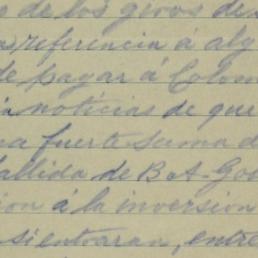 de los giros de
referencia á alg
de pagar á Colom
noticias de que
na fuerte suma d
allida de B A. Go
ion á la inversion
si entraran, entre